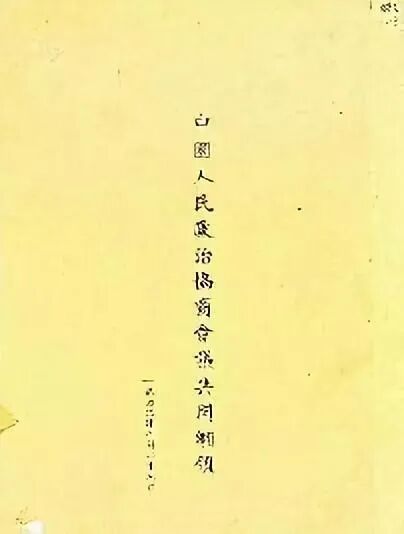 中國人民政治協商會議共同綱領
一九四九年九月二十九日